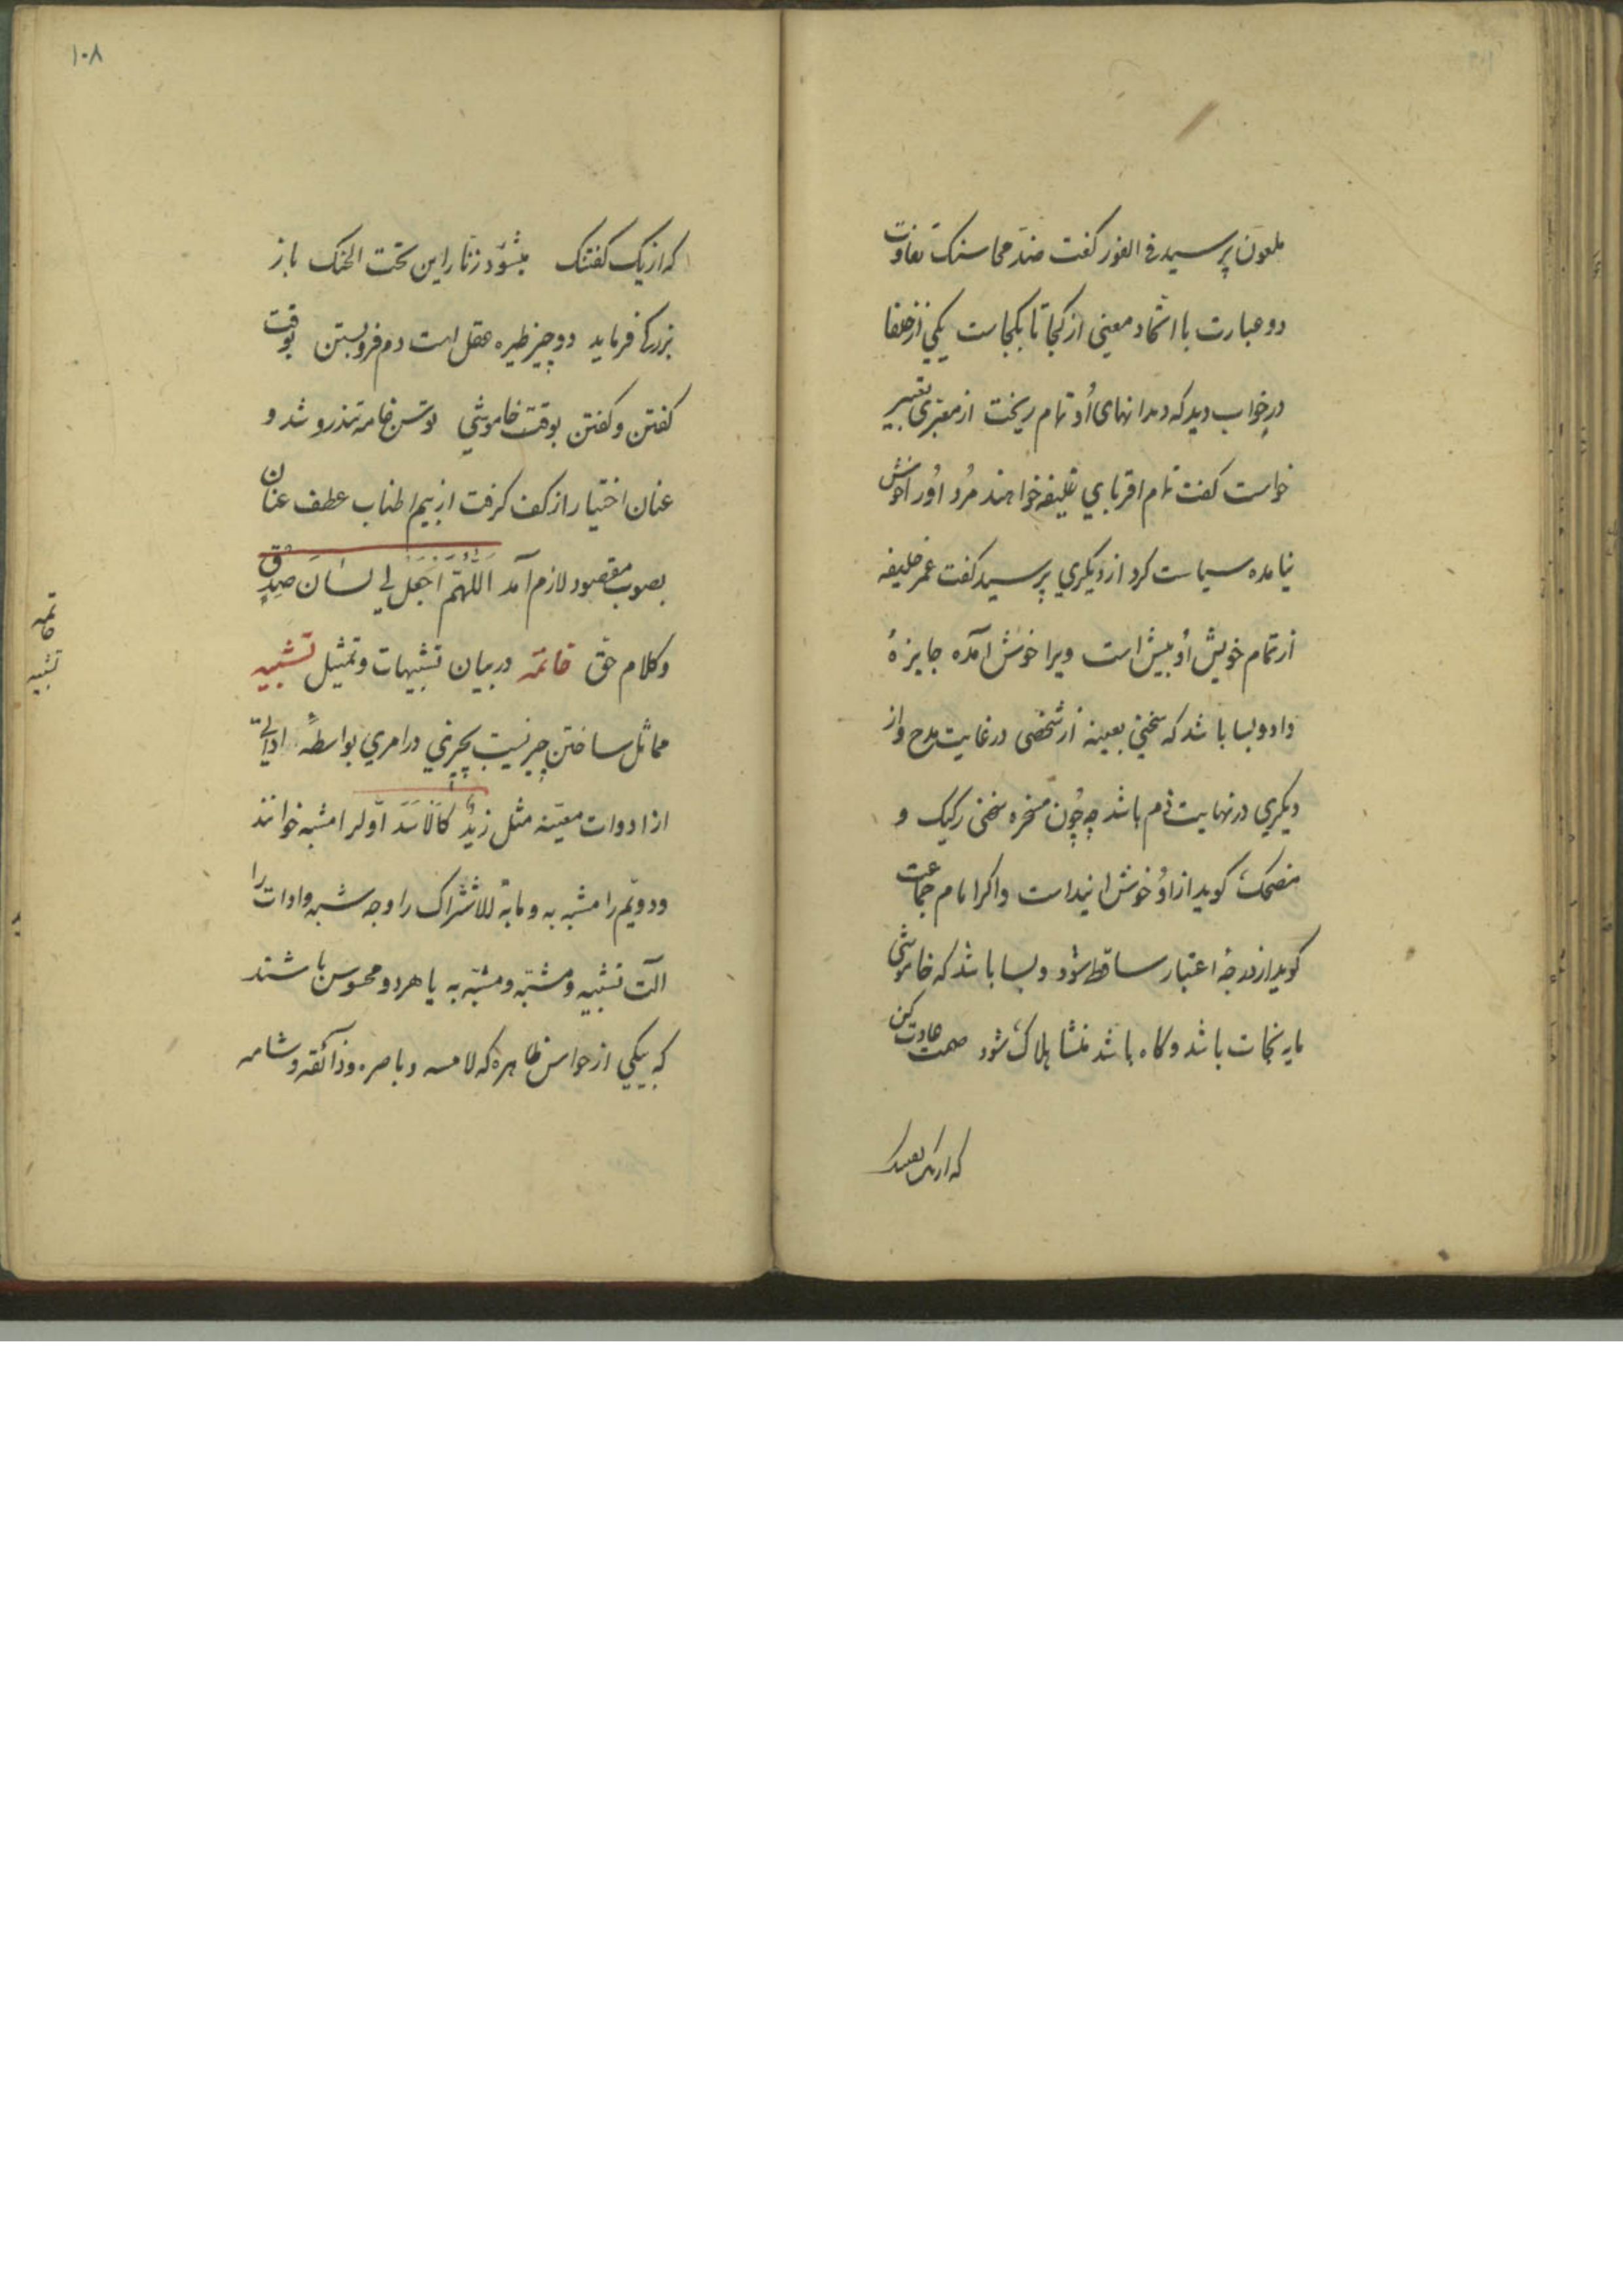 ملعون پرسید فی الفور کفت ضدّ محاسنک تفاوت
دو عبارت با اتحاد معینی از کجا تا بکجاست یکی از خلفا
در خواب دید که دندانهای أو تمام ریخت از معبری تعبیر
خواست کفت تمام اقربای خلیفه خواهند مُرد اورا خوش
نیامده سیاست کرد از دیکری پرسید کفت عمر خلیفه
از تمام خویش أو بیش است ویرا خوش آمده جایزۀ
داد و بسا باشد که سخنی بعینه از شخصی در غایت مدح و از
دیکری در نهایت ذم باشد چه چُون مسخره سخنی رکیک و
مضحک کوید از اوُ خوش ایند است و اکر امام جماعت
کوید از درجۀ اعتبار ساقط شود و بسا باشد که خاموشی
مایه نجات باشد و کاه باشد منشا هلاک شود صمت عادت کن
۱۰۸
که از یک کفتنک میشود زنّار این تحت الحنک باز
بزرکی فرماید دو چیز طیره عقل است دم فروبستن بوقت
کفتن و کفتن بوقت خاموشی توسن خامه تندرو شد و
عنان اختیار از کف کرفت از بیم اطناب عطف عنان
بصوب مقصود لازم آمد اللّهمّ اجعل لی لسان صدق
و کلام حق خاتمه در بیان تشبیهات و تمثیل تشبیه
مماثل ساختن چیزیست بچیزی در امری بواسطۀ اداتی
از ادوات معیّنه مثل زیدٌ کالاسد اوّلرا مشبه خوانند
و دویّم را مشبه به و مابه للاشتراک را وجه شبه و ادات را
آلت تشبیه و مشبّه و مشبّه به یا هر دو محسوس باشند
که بیکی از حواس ظاهره که لامسه و باصره و ذائقه و شامه
خاتمه
تشبیه